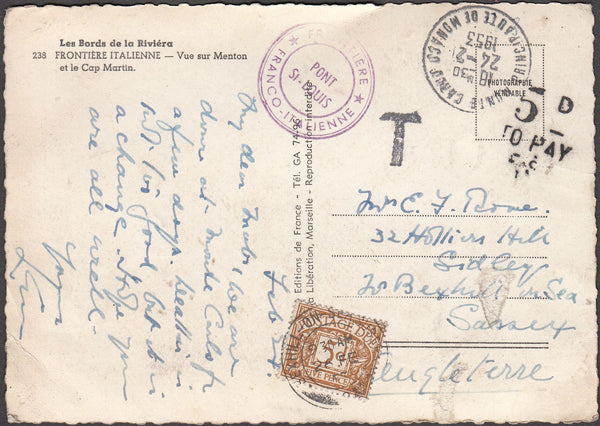 Les Bords de la Riviéra
238 FRONTIÈRE ITALIENNE — Vue sur Menton
et le Cap Martin.
FRONTIÈRE
PONT
St-LOUIS
FRANCO-ITALIENNE
PRINCIPAUTÉ DE MONACO
24-2
1953
PHOTOGRAPHIE
VÉRITABLE
T
5 D
TO PAY
Editions de France - Tél. GA 74-96
La Libération, Marseille - Reproduction interdite
Feb 24
My dear Mabs, we are
down at Monte Carlo for
a few days. Weather is
but it is
a change. Hope you
are all well -
Yours
Mrs E. F. Bone.
32 Holliers Hill
Sidley
Nr Bexhill on Sea
Sussex
Angleterre
POSTAGE DUE
5
FIVE PENCE